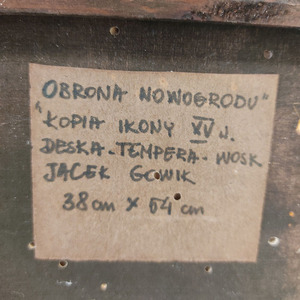 OBRONA NOWOGRODU"
"KOPIA IKONY XV W.
DESKA-TEMPERA-WOSK
JACEK GOWIK
38 cm X 64 cm